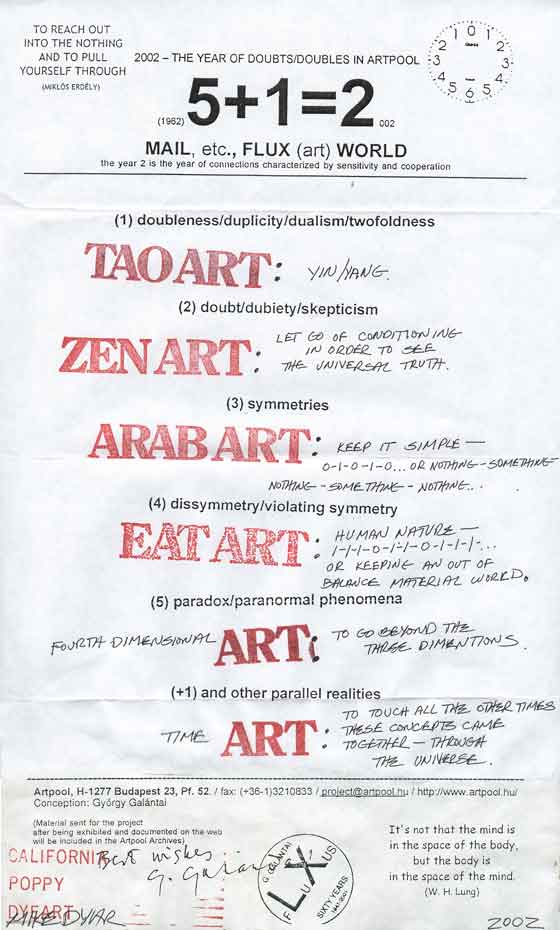 TO REACH OUT
INTO THE NOTHING
AND TO PULL
YOURSELF THROUGH
(MIKLÓS ERDÉLY)
2002 – THE YEAR OF DOUBTS/DOUBLES IN ARTPOOL
(1962) 5+1=2 002
MAIL, etc., FLUX (art) WORLD
the year 2 is the year of connections characterized by sensitivity and cooperation
(1) doubleness/duplicity/dualism/twofoldness
TAO ART: YIN/YANG.
(2) doubt/dubiety/skepticism
ZEN ART: LET GO OF CONDITIONING
IN ORDER TO SEE
THE UNIVERSAL TRUTH.
(3) symmetries
ARAB ART: KEEP IT SIMPLE —
0-1-0-1-0... OR NOTHING-SOMETHING
NOTHING-SOMETHING-NOTHING...
(4) dissymmetry/violating symmetry
EAT ART: HUMAN NATURE —
1-1-1-0-1-1-0-1-1-1-...
OR KEEPING AN OUT OF
BALANCE MATERIAL WORLD.
(5) paradox/paranormal phenomena
FOURTH DIMENSIONAL ART: TO GO BEYOND THE
THREE DIMENTIONS.
(+1) and other parallel realities
TIME ART: TO TOUCH ALL THE OTHER TIMES
THESE CONCEPTS CAME
TOGETHER — THROUGH
THE UNIVERSE.
Artpool, H-1277 Budapest 23, Pf. 52. / fax: (+36-1)3210833 / project@artpool.hu / http://www.artpool.hu/
Conception: György Galántai
(Material sent for the project
after being exhibited and documented on the web
will be included in the Artpool Archives)
CALIFORNIA
POPPY
DYEART
Best wishes
G. Galántai
MIKE DYAR
G. GALÁNTAI
FLUXUS
SIXTY YEARS
It's not that the mind is
in the space of the body,
but the body is
in the space of the mind.
(W. H. Lung)
2002